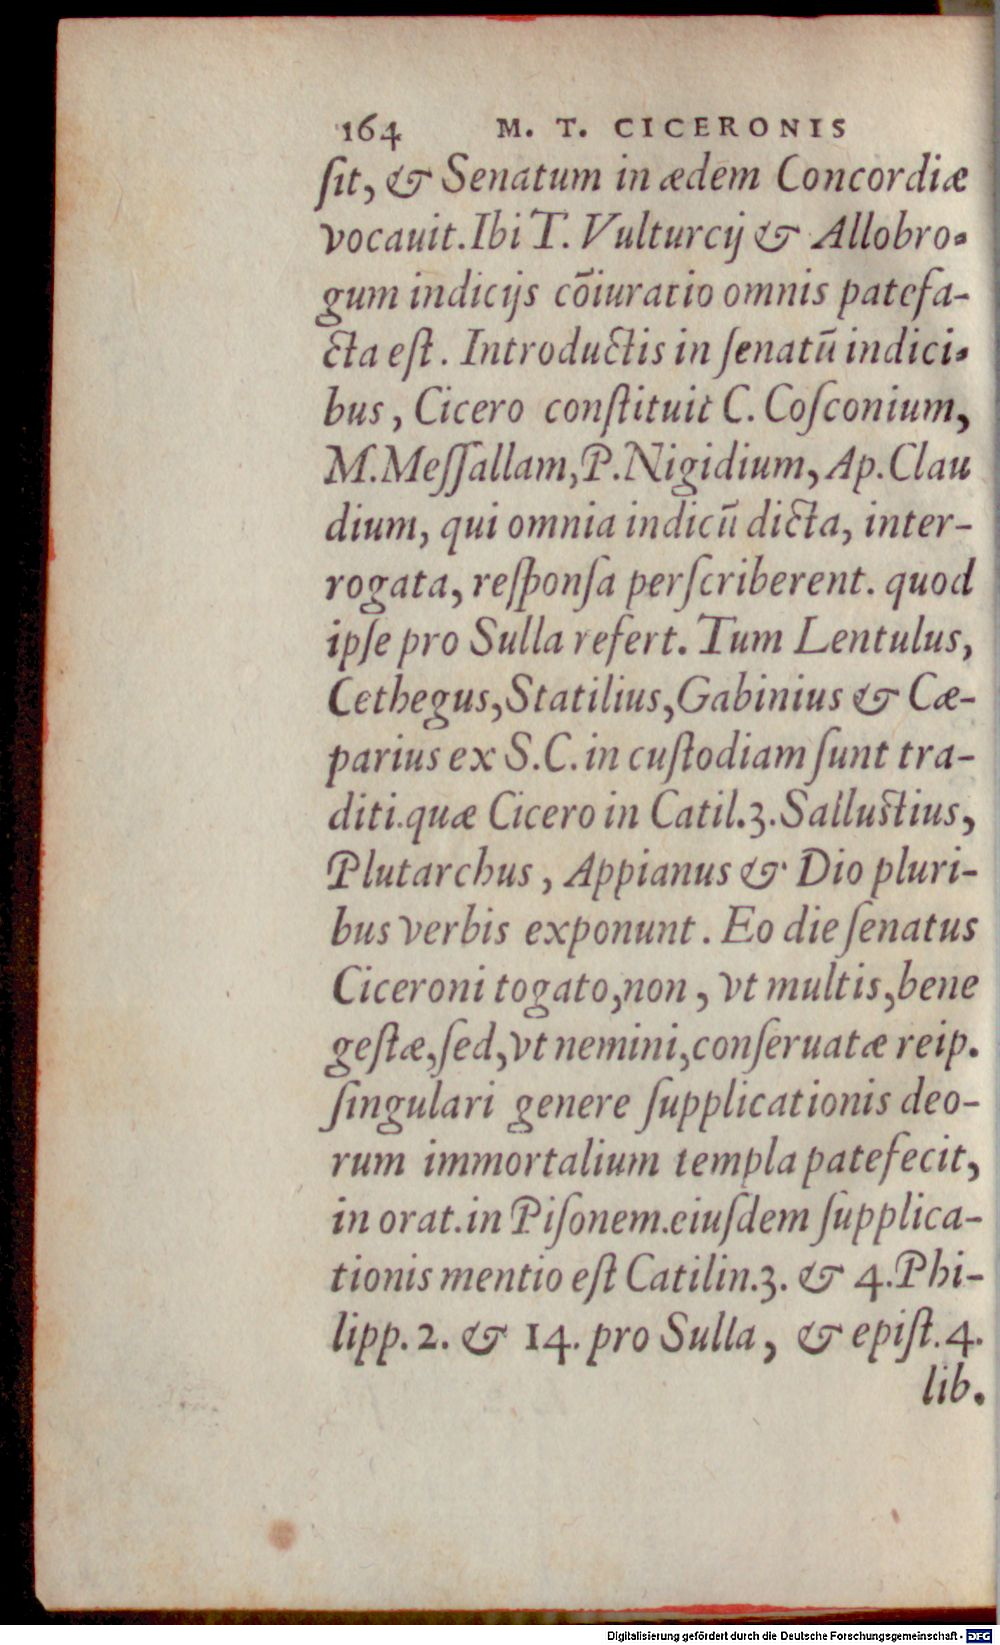 164 M. T. CICERONIS
ſit, & Senatum in ædem Concordiæ
vocauit. Ibi T. Vulturcij & Allobro-
gum indicijs cõiuratio omnis patefa-
cta eſt. Introductis in ſenatũ indici-
bus, Cicero conſtituit C. Coſconium,
M. Meſſallam, P. Nigidium, Ap. Clau
dium, qui omnia indicũ dicta, inter-
rogata, reſponſa perſcriberent. quod
ipſe pro Sulla refert. Tum Lentulus,
Cethegus, Statilius, Gabinius & Cæ-
parius ex S.C. in cuſtodiam ſunt tra-
diti. quæ Cicero in Catil. 3. Salluſtius,
Plutarchus, Appianus & Dio pluri-
bus verbis exponunt. Eo die ſenatus
Ciceroni togato, non, vt multis, bene
geſtæ, ſed, vt nemini, conſeruatæ reip.
ſingulari genere ſupplicationis deo-
rum immortalium templa patefecit,
in orat. in Piſonem. eiuſdem ſupplica-
tionis mentio eſt Catilin. 3. & 4. Phi-
lipp. 2. & 14. pro Sulla, & epiſt. 4.
lib.
Digitalisierung gefördert durch die Deutsche Forschungsgemeinschaft - DFG